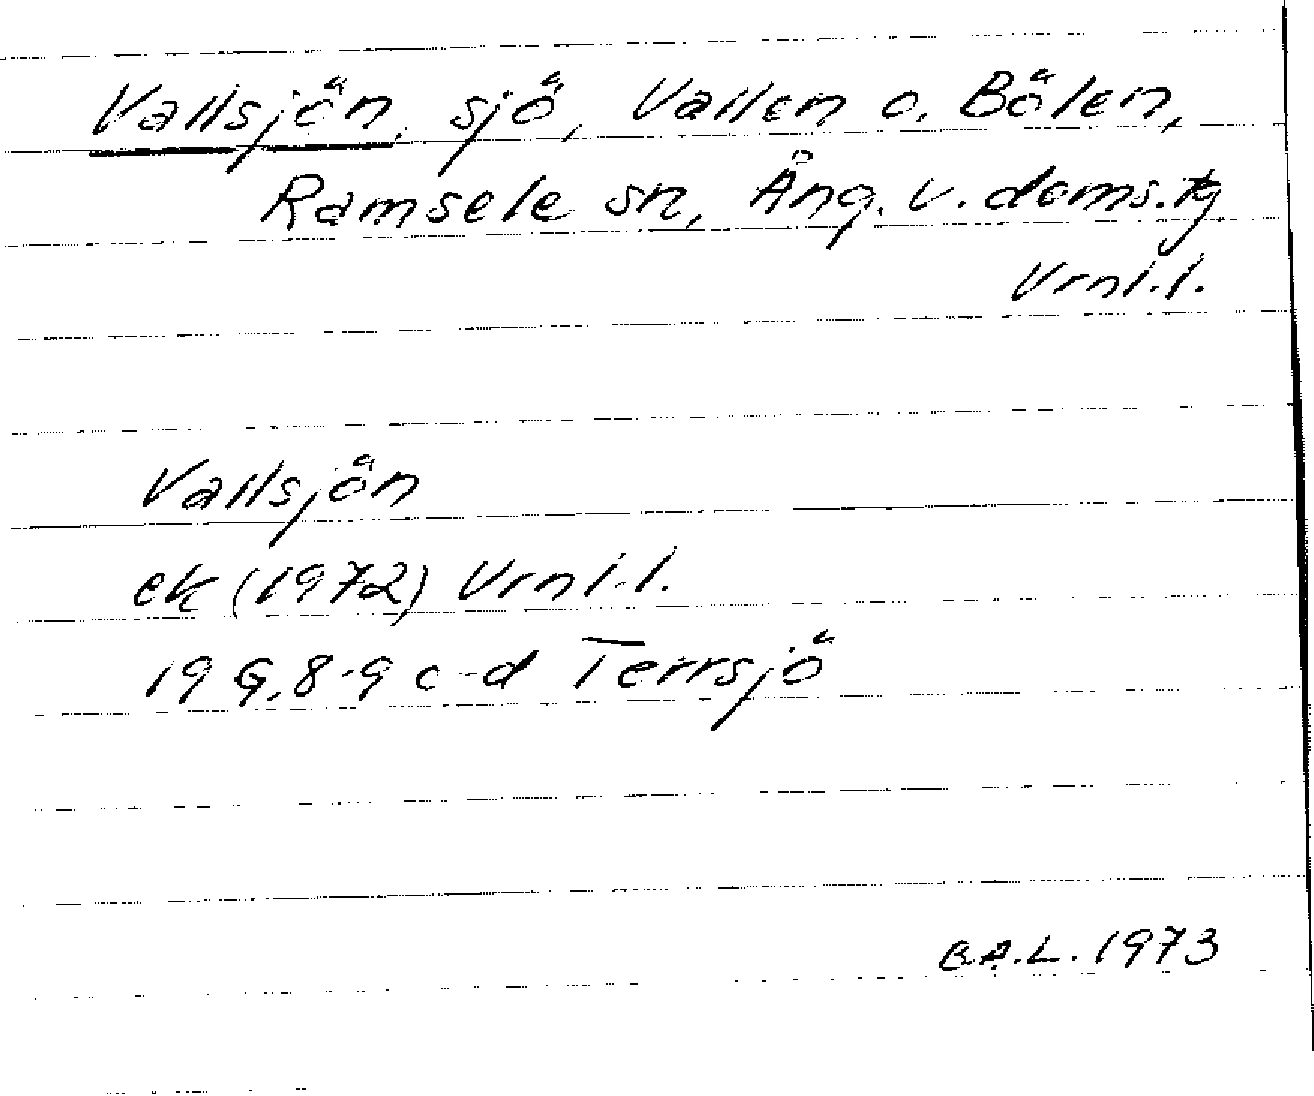 Vallsjön, sjö, Vallen o. Bölen,
Ramsele sn, Ång. v. doms.tg
Vrnl.l.
Vallsjön
ek (1972) Vrnl.l.
19 G, 8-9 c-d Terrsjö
B.A.L. 1973